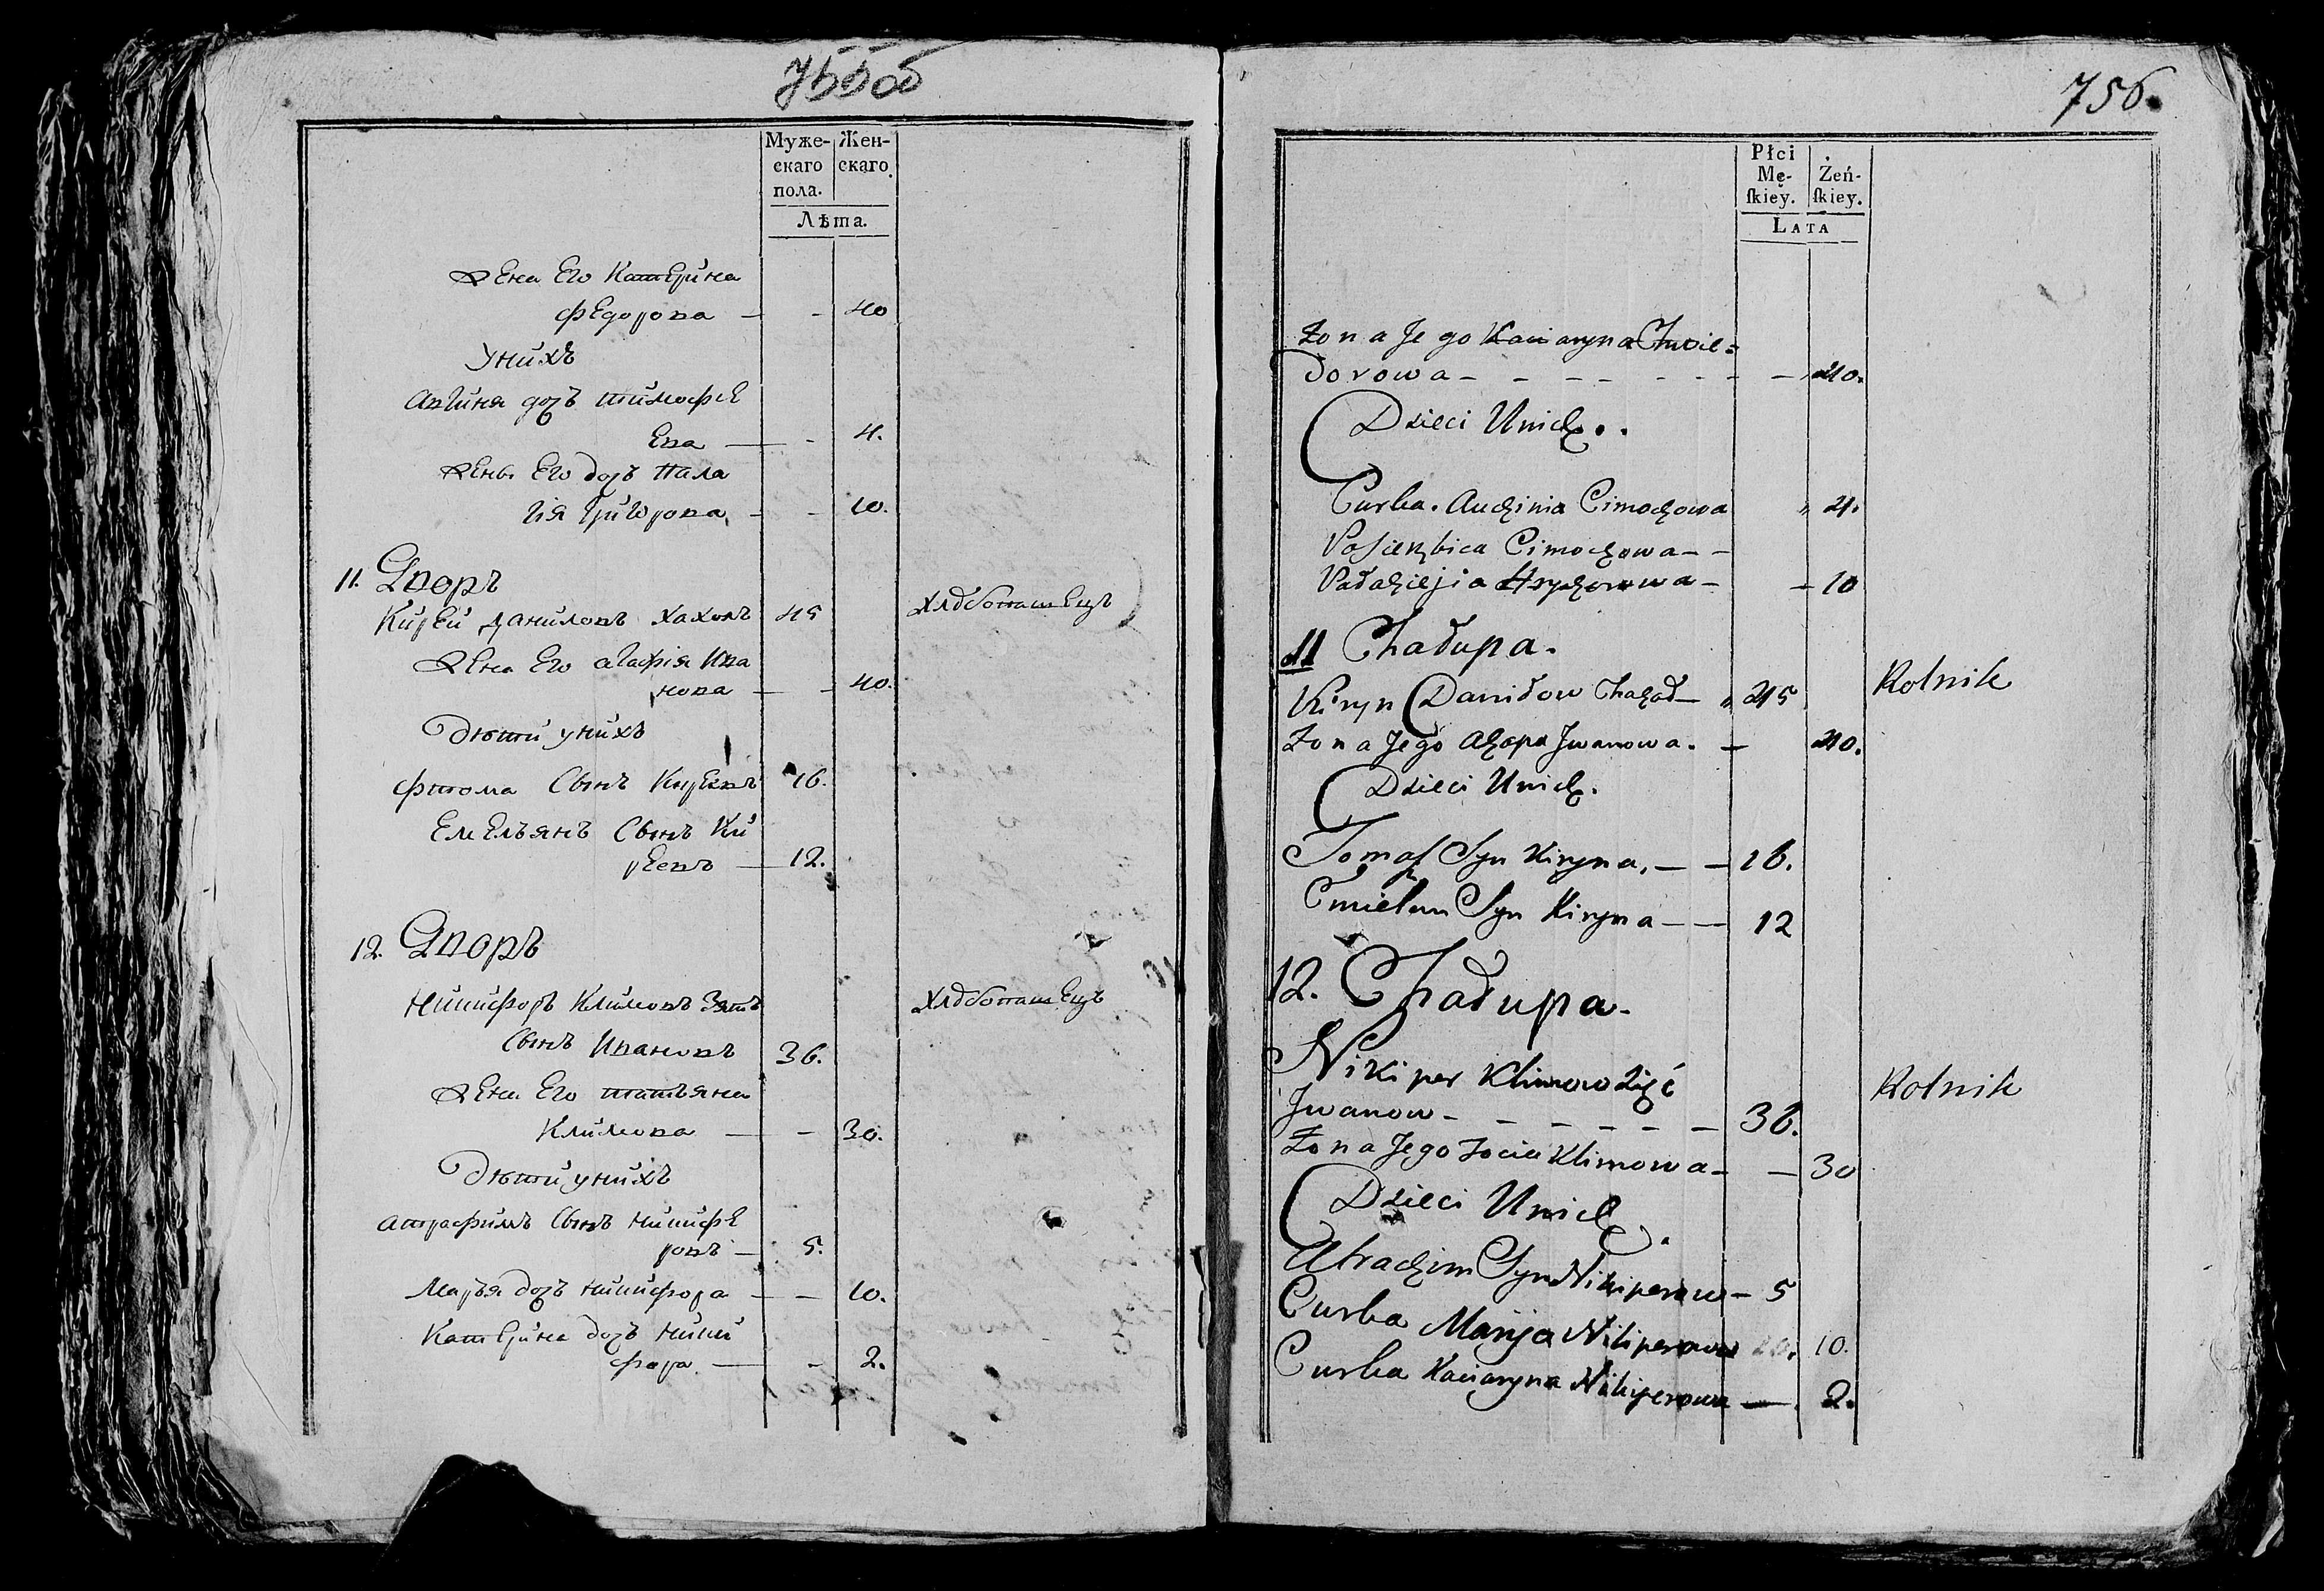 755об
Муже-
скаго
пола.
Жен-
скаго.
Лѣта.
Жена Его Катерина
Федорова — - 40
Унихъ
Авгиня дочъ тимофе
Ева — - 4.
Жены Его дочъ Пала
гія Григорова - - 10.
11. Дворъ
Кирей Даниловъ Хахолъ 45 Хлебопашецъ
Жена Его агафія Ива
нова — - 40.
Дѣти унихъ
Фтома Сынъ Киреевъ 16.
Емельянъ Сынъ Ки
реевъ — 12.
12. Дворъ
Никифоръ Климовъ Зять Хлебопашецъ
Сынъ Ивановъ 36.
Жена Его татьяна
Климова — - 30.
Дѣти унихъ
Атрафимъ Сынъ Никифе
ровъ — 5.
Марья дочъ Никифора — - 10.
Катерина дочъ Ники
фора — - 2.
756.
Płci
Mę-
ſkiey.
Żeń-
ſkiey.
LATA
Żona Jego Kaciaryna Chwie=
dorowa - - - - - - - 40.
Dzieci Unich.
Curka. Auchinia Cimochowa 4.
Pasierzbica Cimochowa - -
Pałachieja Hrychorowa - - 10
11 Chałupa.
Kiryn Daniłow Chachoł — 45 Rolnik
Żona Jego Ahapa Jwanowa. — 40.
Dzieci Unich.
Tomaſz Syn Kiryna. — — 16.
Emielan Syn Kiryna — — 12
12. Chałupa.
Nikiper Klimow Zięć
Jwanow - - - - - - 36. Rolnik
Żona Jego Tocia Klimowa - — 30
Dzieci Unich
Atrachim Syn Nikiperow — 5
Curka Maryja Nikiperowa 10.
Curka Kaciaryna Nikiperowa — 2.